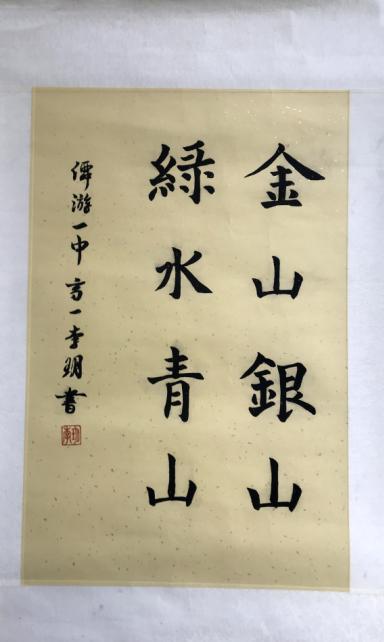 金山銀山
綠水青山
仙游一中高一李玥書